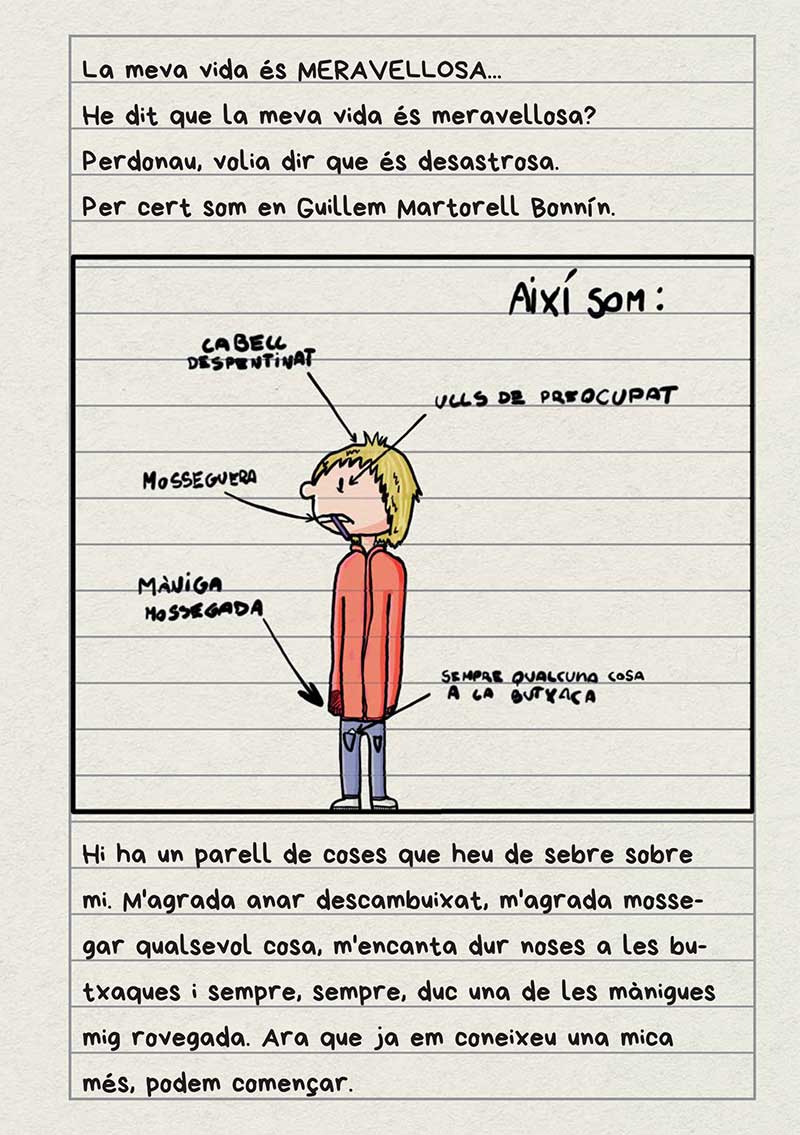 La meva vida és MERAVELLOSA...
He dit que la meva vida és meravellosa?
Perdonau, volia dir que és desastrosa.
Per cert som en Guillem Martorell Bonnín.
AIXÍ SOM:
CABELL
DESPENTINAT
ULLS DE PREOCUPAT
MOSSEGUERA
MÀNIGA
MOSSEGADA
SEMPRE QUALCUNA COSA
A LA BUTXACA
Hi ha un parell de coses que heu de sebre sobre
mi. M'agrada anar descambuixat, m'agrada mosse-
gar qualsevol cosa, m'encanta dur noses a les bu-
txaques i sempre, sempre, duc una de les mànigues
mig rovegada. Ara que ja em coneixeu una mica
més, podem començar.